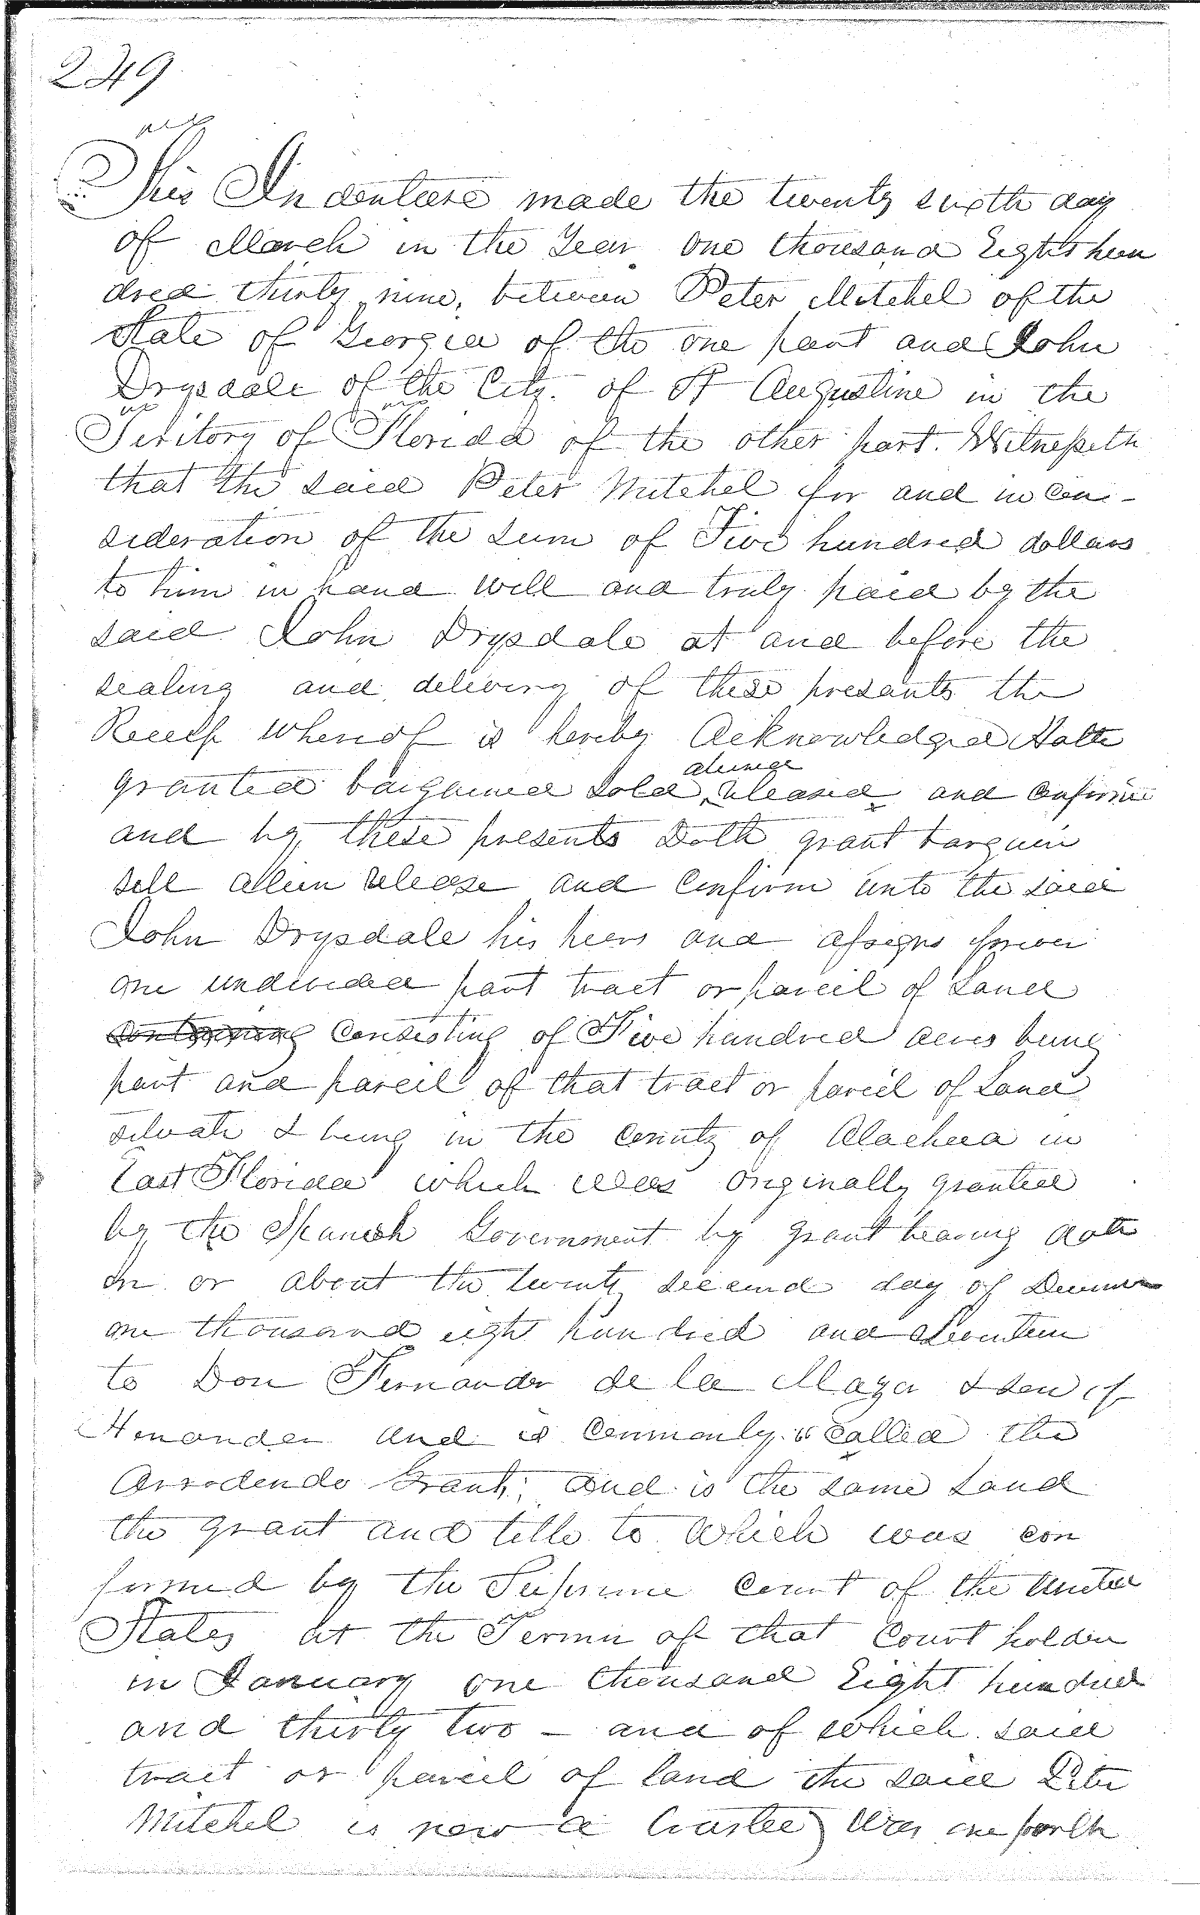 249
This Indenture made the twenty sixth day
of March in the Year One thousand Eight hun
dred thirty nine, between Peter Mitchel of the
State of Georgia of the one part and John
Drysdale of the City of St Augustine in the
Teritory of Florida of the other part. Witnesseth
that the said Peter Mitchel for and in con-
sideration of the sum of Five hundred dollars
to him in hand well and truly paid by the
said John Drysdale at and before the
sealing and delivery of these presants the
Receip whereof is hereby Acknowledged Hath
granted bargained sold, released and confirm
and by these presents Doth grant bargain
sell alien release and confirm unto the said
John Drysdale his heirs and assigns forever
one undivided part tract or parcel of Land
containing consisting of Five hundred acres being
part and parcel of that tract or parcel of Land
situate & being in the County of Alachua in
East Florida which was originally granted
by the Spanish Government by grant bearing date
on or about the twenty second day of
one thousand eight hundred and Seventeen
to Don Fernando de la Maza
and is commonly called the
Arrodendo Grant, and is the same Land
the grant and title to which was con
firmed by the Supreme Court of the United
States at the Term of that Court holden
in January one thousand Eight hundred
and thirty two - and of which said
tract or parcel of land the said Peter
Mitchel is now a trustee)